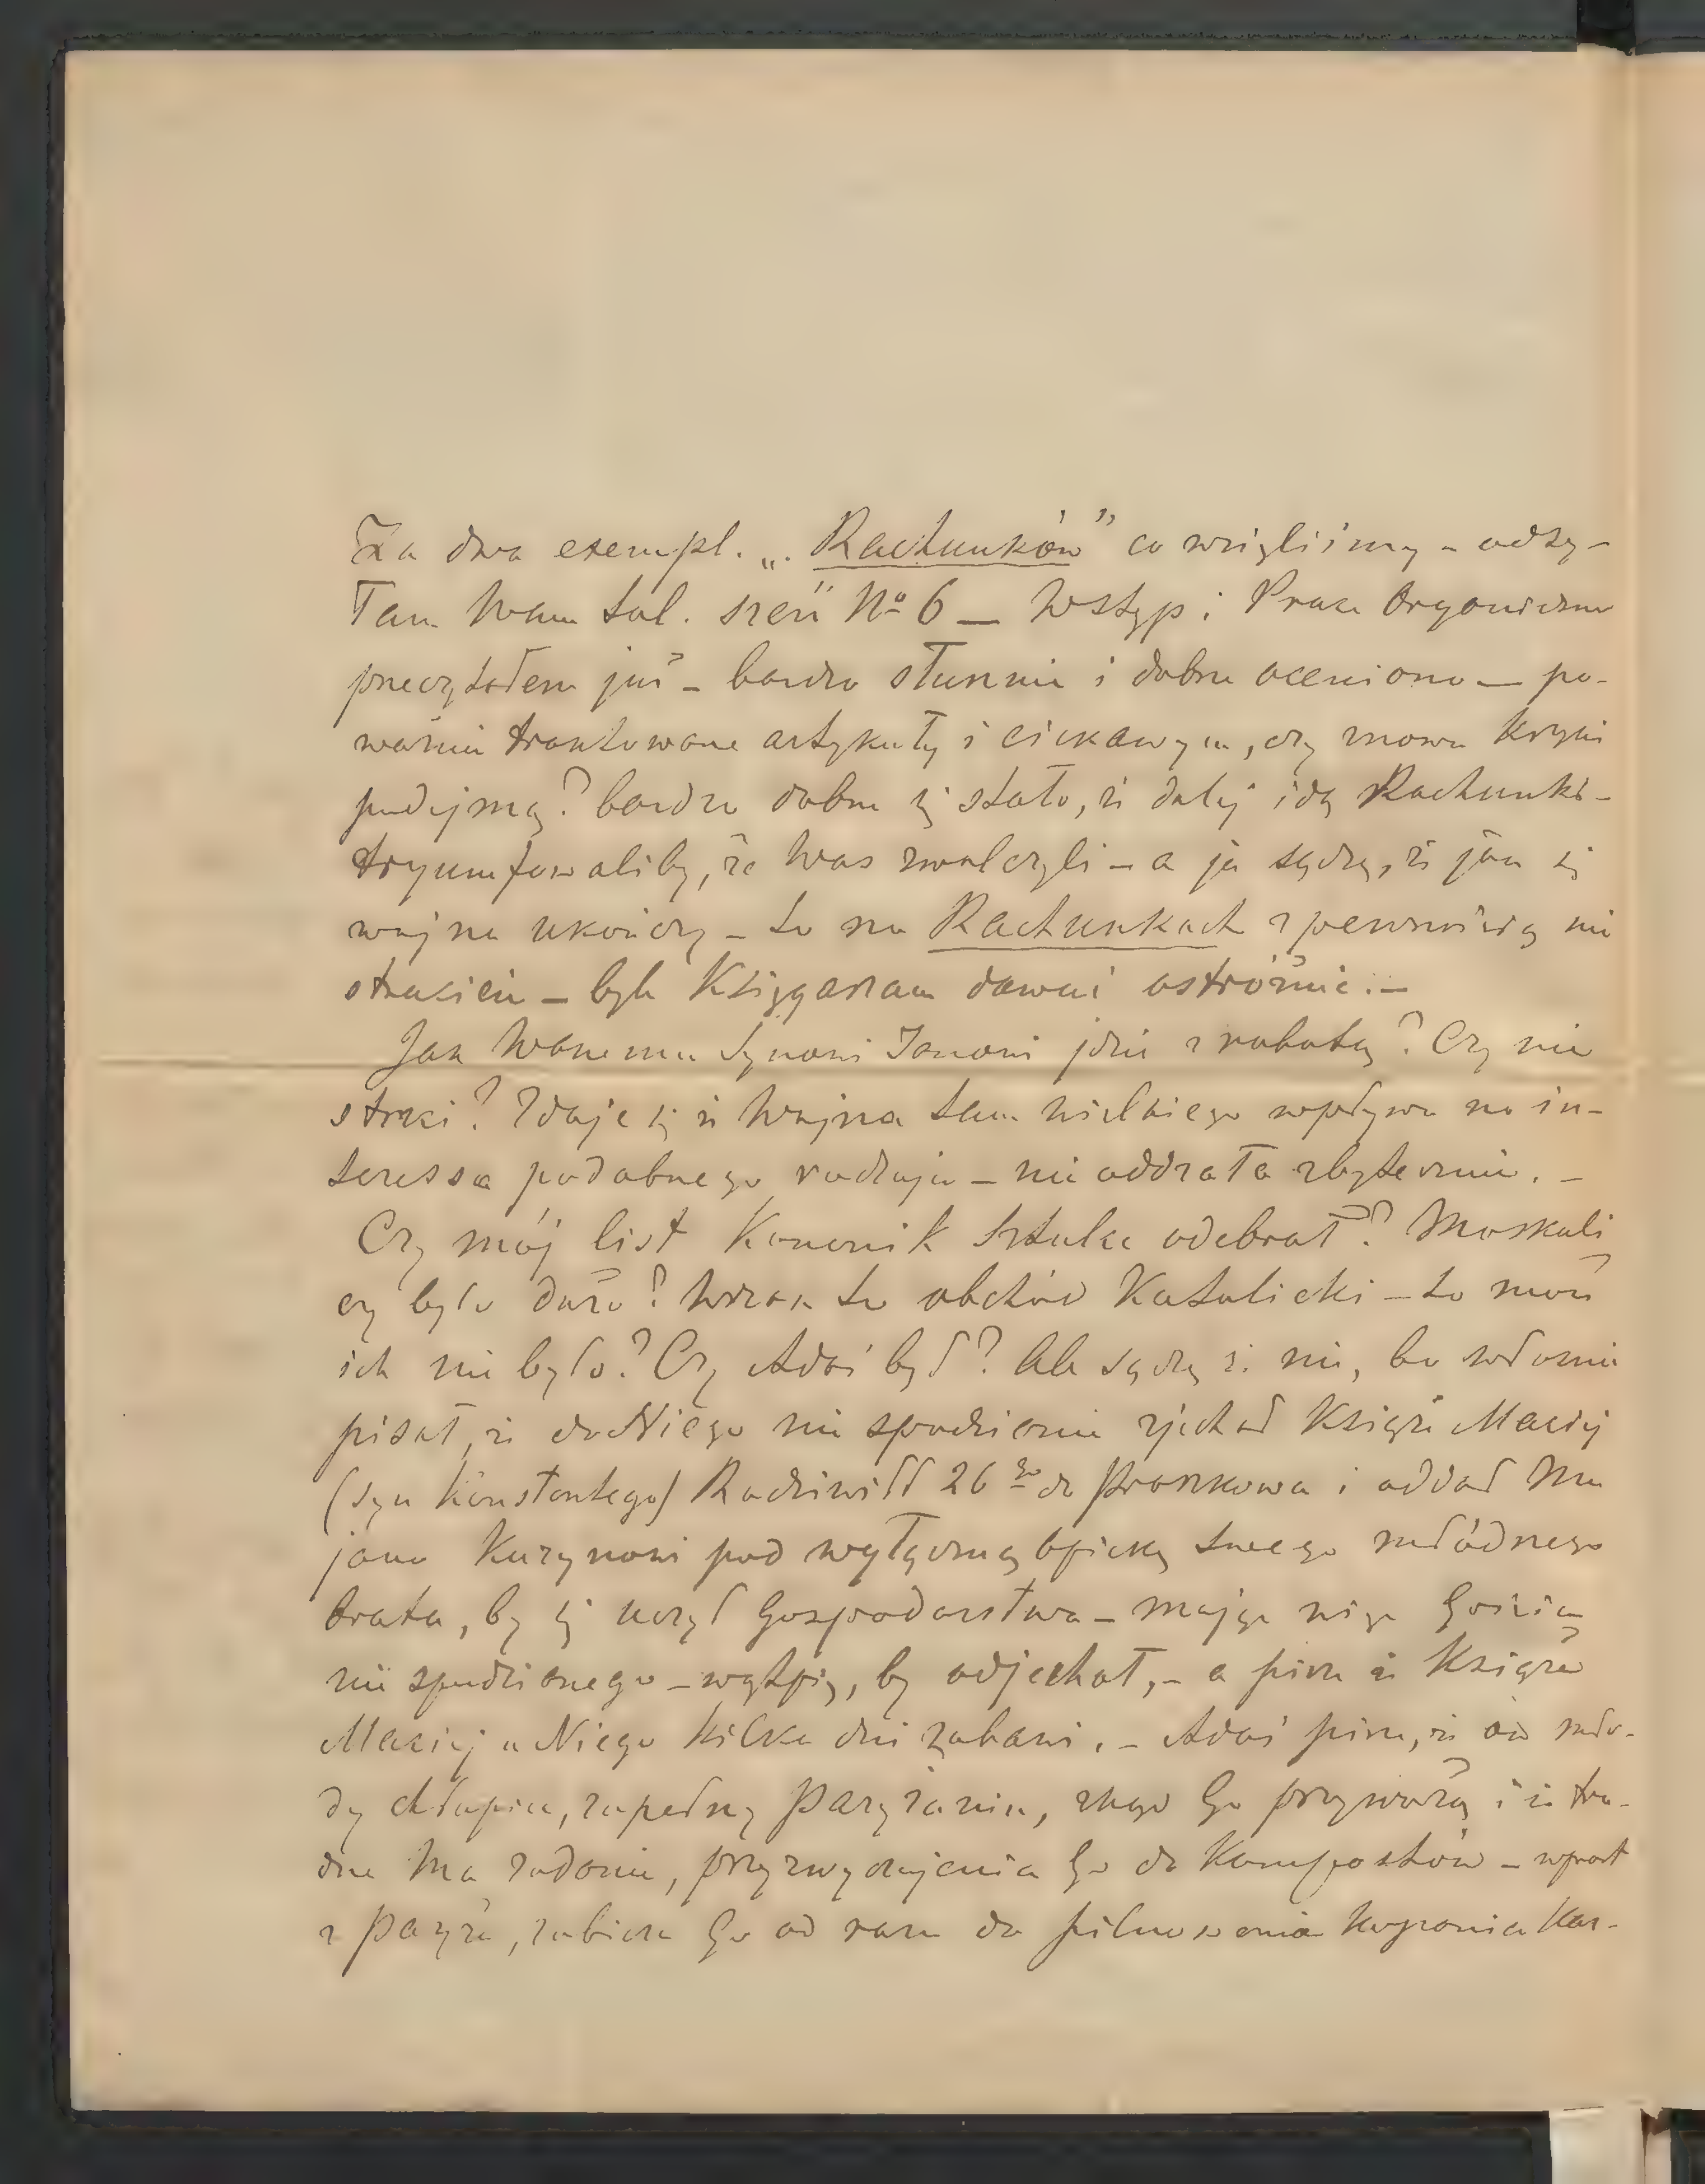 Za dwa exempl. „Rachunków” co wzięliśmy – odsy-
łam Wam tal. sześć № 6 — Wstęp i Prace Organiczne
przeczytałem już – bardzo słusznie i dobrze oceniono — po-
ważnie traktowane artykuły i ciekawym, czy znowu krzyki
podejmą? bardzo dobrze się stało, że dalej idą Rachunki –
tryumfowaliby, że Was zwalczyli – a ja sądzę, że jak się
wojna ukończy – to na Rachunkach z pewnością nie
stracicie – byle Księgarzam dawać ostróżnie. –
Jak Waszemu Synowi Janowi idzie z robotą? Czy nie
straci? Zdaje się że Wojna tam wielkiego wpływu na in-
teressa podobnego rodzaju – nie oddziała zbytecznie. –
Czy mój list Kanonik Sztulc odebrał? Moskali
czy było dużo? Wszak to obchód Katolicki – to może
ich nie było? Czy Adaś był? Ale sądzę że nie, bo właśnie
pisał, że do Niego nie spodzianie zjechał Książe Maciej
(syn Konstantego) Radziwiłł 26go do i oddał Mu
jako pod wyłączną Opiekę swego młódszego
brata, by się uczył Gospodarstwa – mając więc Gościa
nie spodzianego – wątpię, by odjechał, – a pisze że Książe
Maciej u Niego kilka dni zabawi. – Adaś pisze, że ów mło-
dy chłopiec, zupełny Paryżanin, i że tru-
dne Ma zadanie, przyzwyczajenia Go do Kompostów – wprost
z Paryża, zabiera Go od razu do pilnowania kopania Kar-